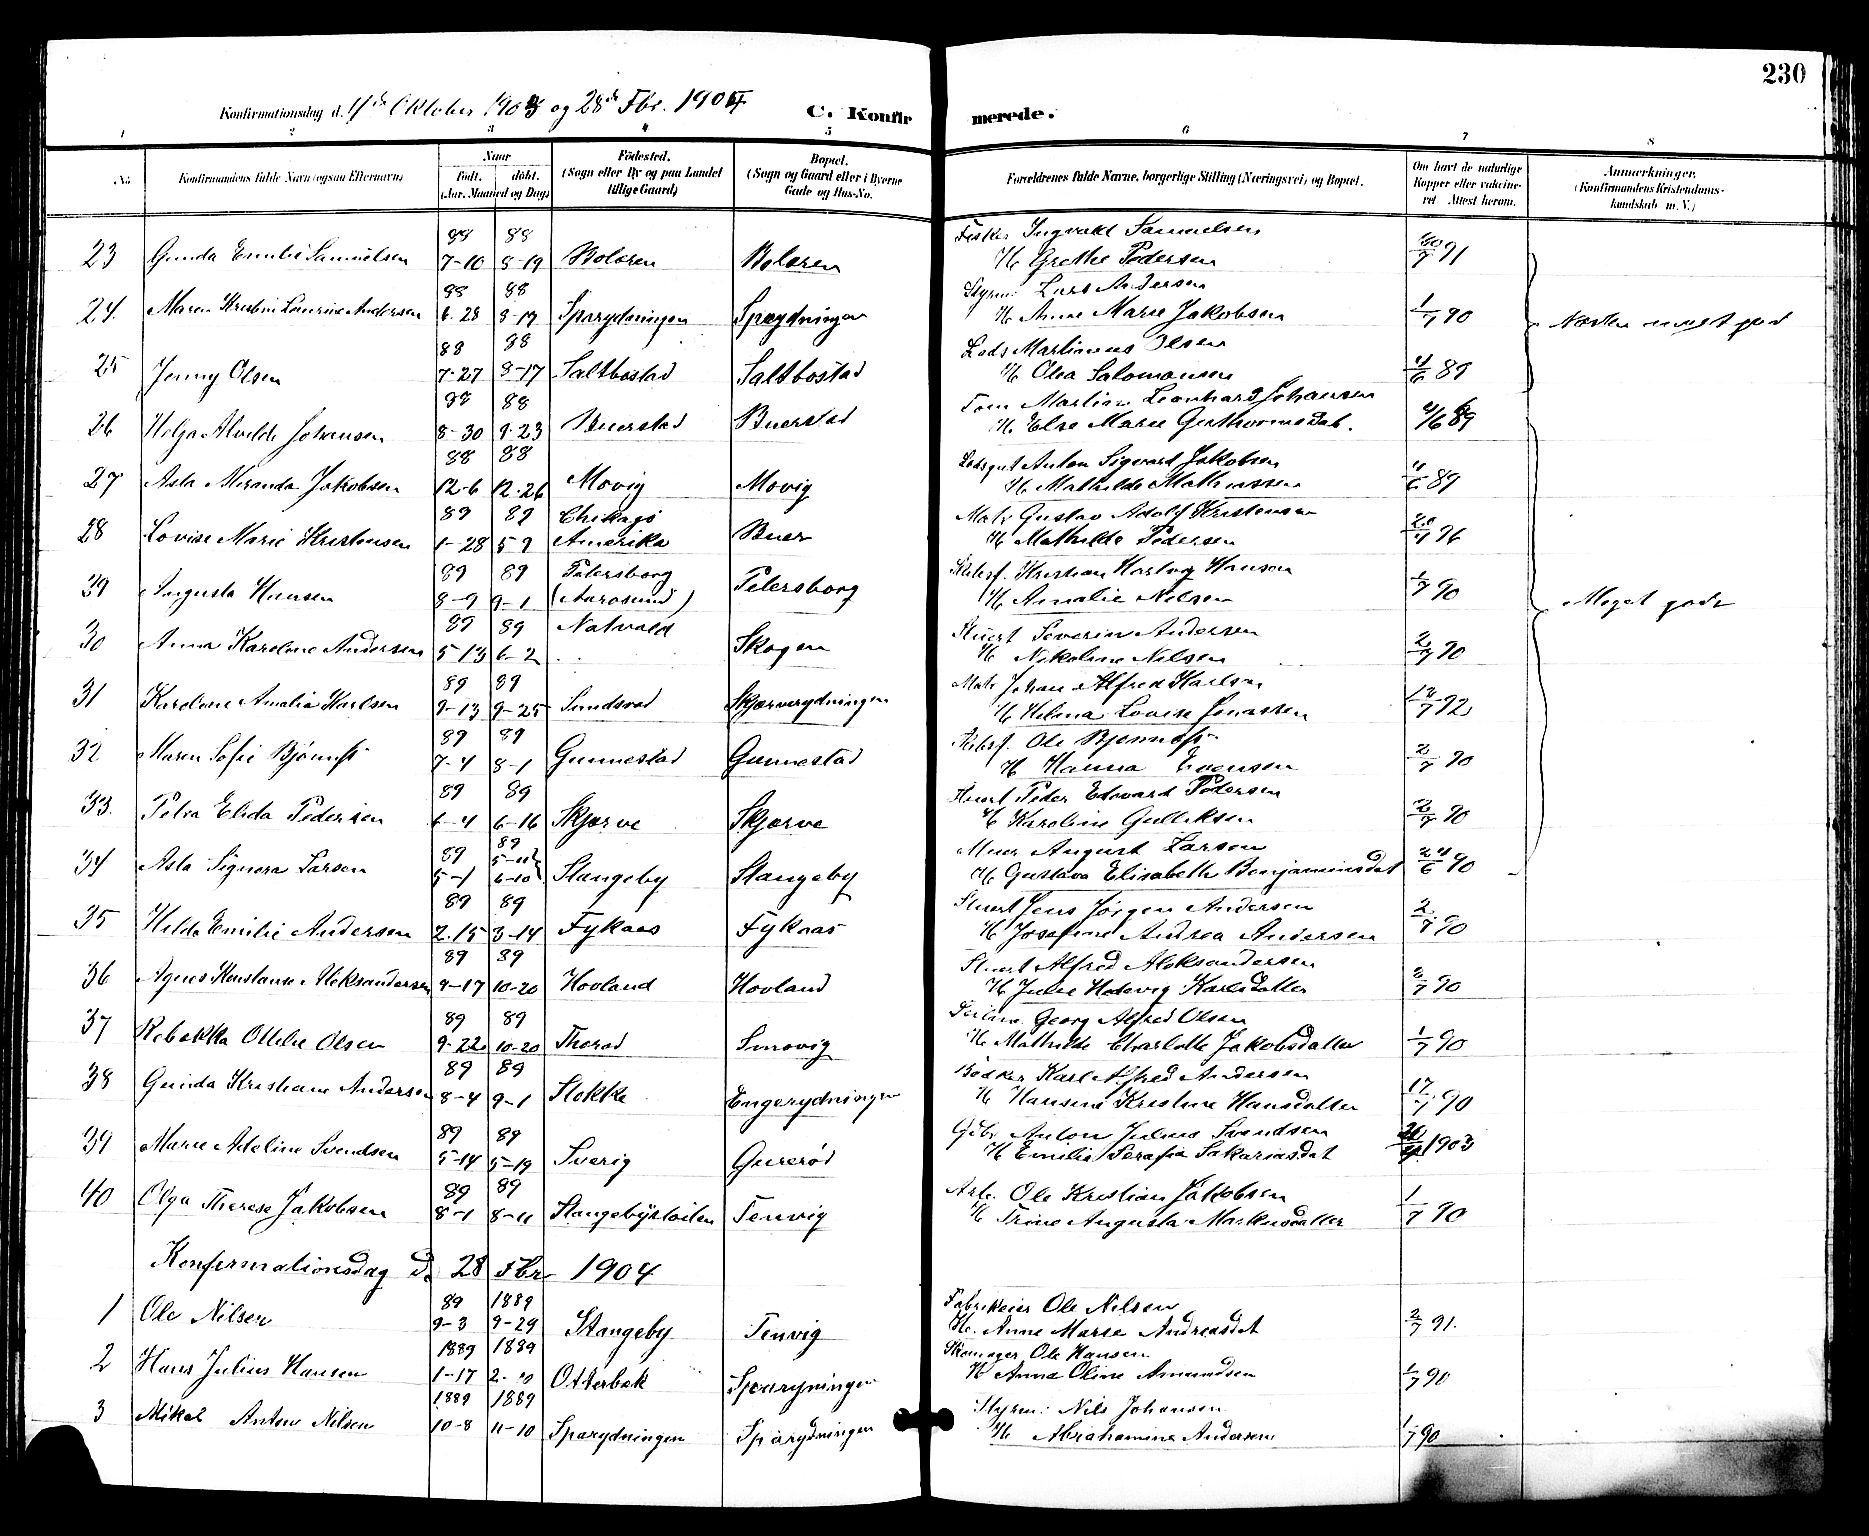 230
Konfirmationsdag d. 4de Oktober 1903 og 28de Fbr. 1904
C. Konfir merede.
1 2 3 4 5 6 7 8
No.
Konfirmandens fulde Navn (ogsaa Efternavn)
Naar
født. døbt.
(Aar. Maaned og Dag)
Fødested.
(Sogn eller By og paa Landet tillige Gaard)
Bopæl.
(Sogn og Gaard eller i Byerne Gade og Hus-No.
Forældrenes fulde Navne, borgerlige Stilling (Næringsvei) og Bopæl.
Om havt de naturlige Kopper eller vaccineret. Attest herom.
Anmærkninger.
(Konfirmandens Kristendomskundskab m. V.)
23 Gunda Emilie Samuelsen 88 7-10 88 8-19 Bolæren Bolæren Fisker Ingvald Samuelsen
H. Grethe Pedersen 30/7 91
24. Maren Kristine Laurine Andersen 88 6-28 88 8-19 Sparydningen Sparydningen Styrm. Lars Andersen
H. Anne Marie Jakobsen 1/7 90
Næsten meget god
25 Jenny Olsen 88 7-27 88 8-17 Saltbostad Saltbostad Lods Martinius Olsen
H. Olea Salomonsen 4/6 89
26 Helga Alvilde Johansen 88 8-30 88 9-23 Buerstad Buerstad Tom. Martin Leonhard Johansen
H. Else Marie Guthormsdat. 4/6 89
27 Asta Miranda Jakobsen 88 12-6 88 12-26 Movig Movig Lodsgut Anton Sigvard Jakobsen
H. Mathilde Mathissen 4/6 89
28 Lovise Marie Kristensen 89 1-28 89 5-9 Chikago Amerika Buer Matr. Gustav Adolf Kristensen
H. Mathilde Pedersen 20/7 96
29 Augusta Hansen 89 8-9 89 9-1 Petersborg (Aarosund) Petersborg Skibsf. Kristian Hartvig Hansen
H. Amalie Nilsen 1/7 90
Meget god
30 Anna Karoline Andersen 89 5-13 89 6-2 Natvald Skogen Stuert Severin Andersen
H. Nikoline Nilsen 2/7 90
31 Karoline Amalia Karlsen 89 9-13 89 9-25 Sundsrød Skjærverydningen Matr. Johan Alfred Karlsen
H. Helena Lovise Jonassen 18/7 92
32 Maren Sofie Bjönness 89 7-4 89 8-1 Gunnestad Gunnestad Skibsf. Ole Bjønness
H. Hanna Evensen 2/7 90
33. Petra Elida Pedersen 89 6-4 89 6-16 Skjærve Skjærve Stuert Peder Edvard Pedersen
H. Karoline Gulliksen 2/7 90
34 Asta Signora Larsen 89 5-1 89 6-10 Stangeby Stangeby Murer August Larsen
H. Gustava Elisabeth Benjaminsdat 24/6 90
35 Hilda Emilie Andersen 89 2-15 89 3-14 Fykaas Fykaas Stuert Jens Jørgen Andersen
H. Josefine Andrea Andersen 2/7 90
36 Agnes Konstanse Aleksandersen 89 9-17 89 10-20 Hovland Hovland Stuert Alfred Aleksandersen
H. Julie Hedevig Karlsdatter 2/7 90
37 Rebekka Ottilie Olsen 89 9-22 89 10-20 Thorød Smøvig Georg Alfred Olsen
H. Mathilde Charlotte Jakobsdatter 1/7 90
38 Gunda Kristiane Andersen 89 8-4 89 9-1 Stokke Engerydningen Bødker Karl Alfred Andersen
H. Hansine Kristine Hansdatter 17/7 90
39 Marie Adeline Svendsen 89 5-14 89 5-19 Sverig Gurerød Gbr. Anton Julius Svendsen
H. Emilia Serafia Sakariasdat 1903
40 Olga Therese Jakobsen 89 8-1 89 8-11 Stangebysletten Tenvig Arb. Ole Kristian Jakobsen
H. Trine Augusta Markusdatter 1/7 90
Konfirmationsdag d. 28 Fbr 1904
1 Ole Nilsen 89 9-3 1889 9-29 Stangeby Tenvig Fabrikeier Ole Nilsen
H. Anne Marie Andreasdat 2/7 91.
2 Hans Julius Hansen 1889 1-17 1889 2-10 Otterbæk Sparydningen Skomager Ole Hansen
H. Anne Oline Amundsen 1/7 90
3 Mikal Anton Nilsen 1889 10-8 1889 11-10 Sparydningen Sparydningen Styrm: Nils Johansen
H. Abrahamine Andersen 1/7 90